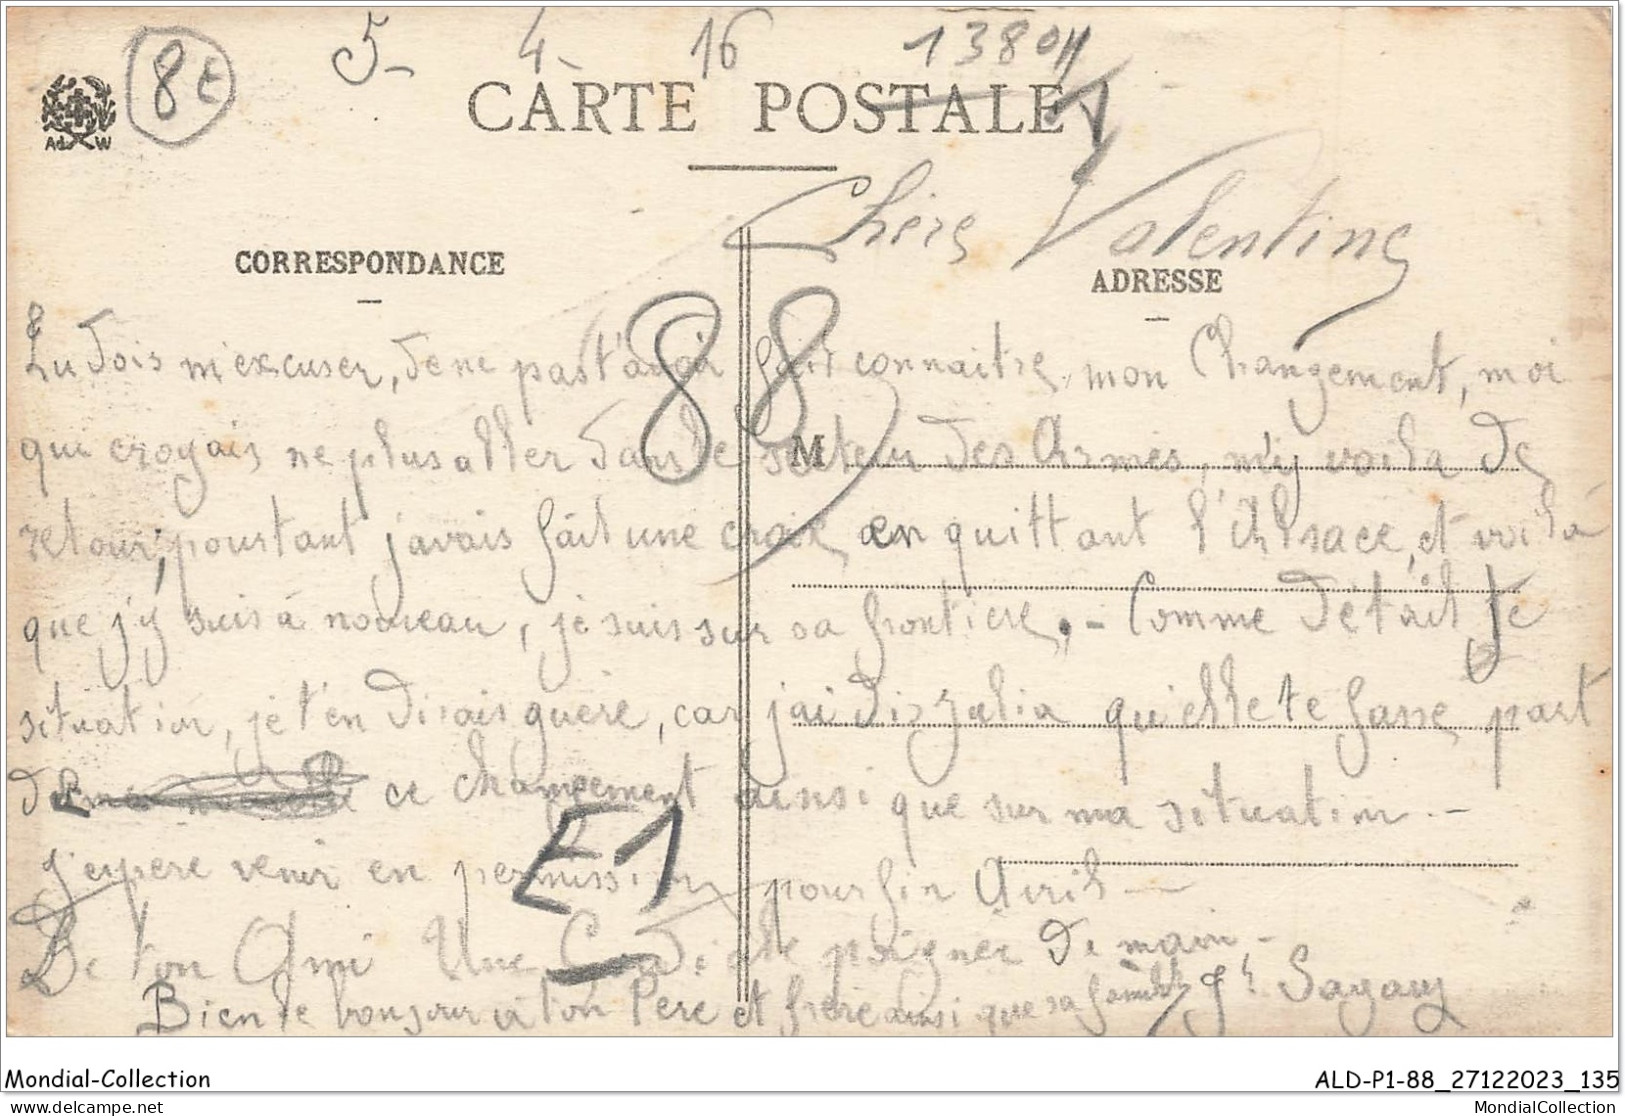 8€
5-4-16
13801
CARTE POSTALE
Ad W
Chère Valentine
CORRESPONDANCE
ADRESSE
88
Tu dois m'excuser, de ne pas t'avoir fait connaitre mon Changement, moi
que croyais ne plus aller dans le secteur des Armes, m'y voila de
M
retour, pourtant j'avais fait une croix en quittant l'Alsace, et voilà
que j'y suis à nouveau, je suis sur sa frontiere. - Comme détail te
situation, je t'en dirais guère, car j'ai dis Julia qu'elle te fasse part
de ce changement ainsi que sur ma situation. -
E1
J'espere venir en permission pour fin Avril -
De ton Ami Une Cordiale poignée de main -
Bien le bonjour à ton Père et frère ainsi que sa famille Jh
Mondial-Collection
ALD-P1-88_27122023_135
www.delcampe.net
MondialCollection